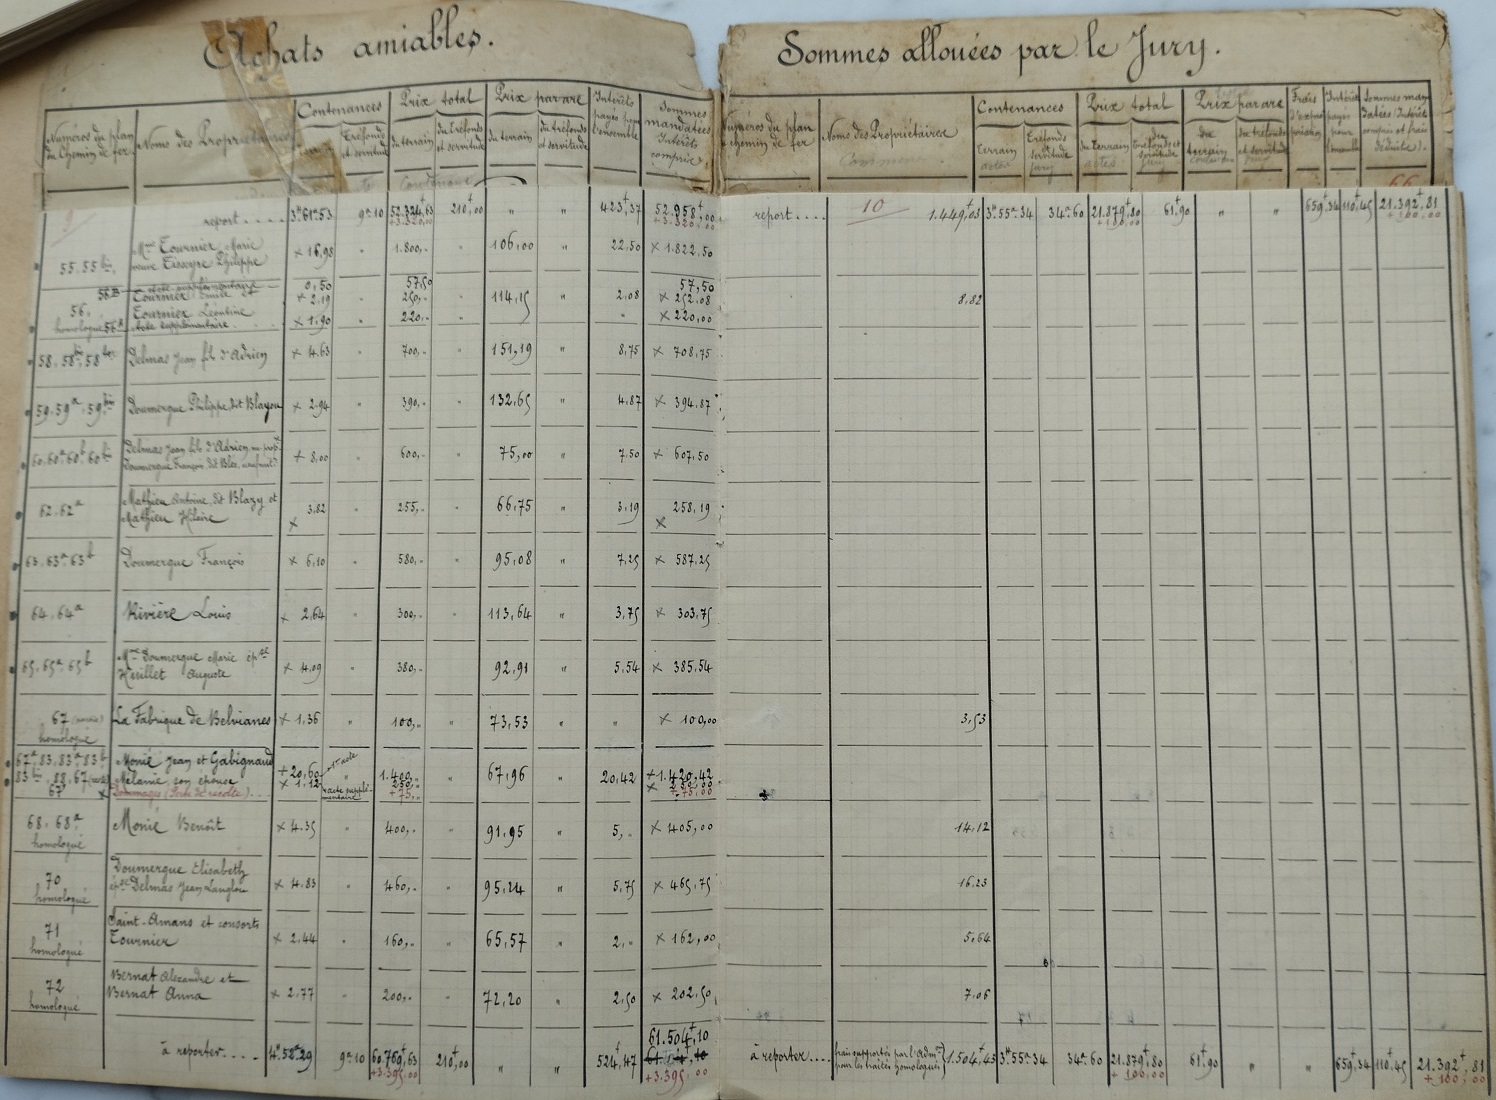 Achats amiables.
Numéros du plan du Chemin de fer
Noms des Propriétaires
Contenances
Tréfonds et servitude
Prix total
du terrain
du tréfonds et servitude
Prix par are
du terrain
du tréfonds et servitude
Intérêts payés pour l'ensemble
Sommes mandatées Intérêts compris
report .... 3ʰ61ᵃ53 9ᵃ10 52.324,63 210,00 " " 423,37 52.958,00
+3.320,00 +3.320,00
55.55 bis Mme Tournier Marie veuve Tisseyre Philippe × 16,98 " 1.800,- " 106,00 " 22,50 × 1.822,50
56B acte supplémentaire 0,50 57,50 57,50
56. Tournier × 2,19 250,- " 114,15 " 2,08 × 252,08
homologué 56A Tournier Léontine Acte supplémentaire × 1,90 220,- " " × 220,00
58. 58 bis 58 ter Delmas Jean fils d'Adrien × 4,63 " 700,- " 151,19 " 8,75 × 708,75
59. 59a. 59 bis Doumerque Philippe, dit Blayou × 2,94 " 390,- " 132,65 " 4,87 × 394,87
60. 60a 60b 60 bis Delmas Jean fils d'Adrien, nu-propre Doumerque François, dit Bles, usufruit × 8,00 " 600,- " 75,00 " 7,50 × 607,50
62. 62a Mathieu Antoine, dit Blazy et Mathieu Hilaire × 3,82 " 255,- " 66,75 " 3,19 × 258,19
63. 63a. 63b Doumerque François × 6,10 " 580,- " 95,08 " 7,25 × 587,25
64. 64a Rivière Louis × 2,64 " 300,- " 113,64 " 3,75 × 303,75
65. 65a. 65b Mme Doumerque Marie épse Huillet Auguste × 4,09 " 380,- " 92,91 " 5,54 × 385,54
67 (partie) homologué La Fabrique de Belvianes × 1,36 " 100,- " 73,53 " " × 100,00
67a. 83. 83a. 83b Monié Jean et Gabignaud + 20,60 1er acte 1.400,- 67,96 " 20,42 + 1.420,42
83 bis. 88. 67 (partie) Mélanie, son épouse × 1,12 acte supplémentaire 250,- × 250,00
67 × Dommages (Perte de récolte) ... + 75,- + 75,00
68. 68a homologué Monié Benoît × 4,35 " 400,- " 91,95 " 5,- × 405,00
70 homologué Doumerque Elisabeth épse Delmas Jean Langlou × 4,83 " 460,- " 95,24 " 5,75 × 465,75
71 homologué Saint-Amans et consorts Tournier × 2,44 " 160,- " 65,57 " 2,- × 162,00
72 homologué Bernat Alexandre et Bernat Anna × 2,77 " 200,- " 72,20 " 2,50 × 202,50
61.504,10
à reporter .... 4ʰ52ᵃ29 9ᵃ10 60.769,63 210,00 " " 524,47
+3.395,00 +3.395,00
Sommes allouées par le Jury.
Numéros du plan chemin de fer
Noms des Propriétaires
Contenances
terrain
Tréfonds et servitude
Prix total
du terrain
du tréfonds et servitude
Prix par are
du terrain
du tréfonds et servitude
Frais d'expropriation
Intérêts payés pour l'ensemble
Sommes mandatées (Intérêts compris et frais déduits).
report .... 10 1.449,03 3ʰ55ᵃ34 34ᵃ60 21.879,80 61,90 " " 659,34 110,45 21.392,81
+100,00 +100,00
8,82
3,53
14,12
16,23
5,64
7,06
à reporter .... frais supportés par l'Admon pour les traités homologués 1.504,43 3ʰ55ᵃ34 34ᵃ60 21.879,80 61,90 " " 659,34 110,45 21.392,81
+ 100,00 + 100,00